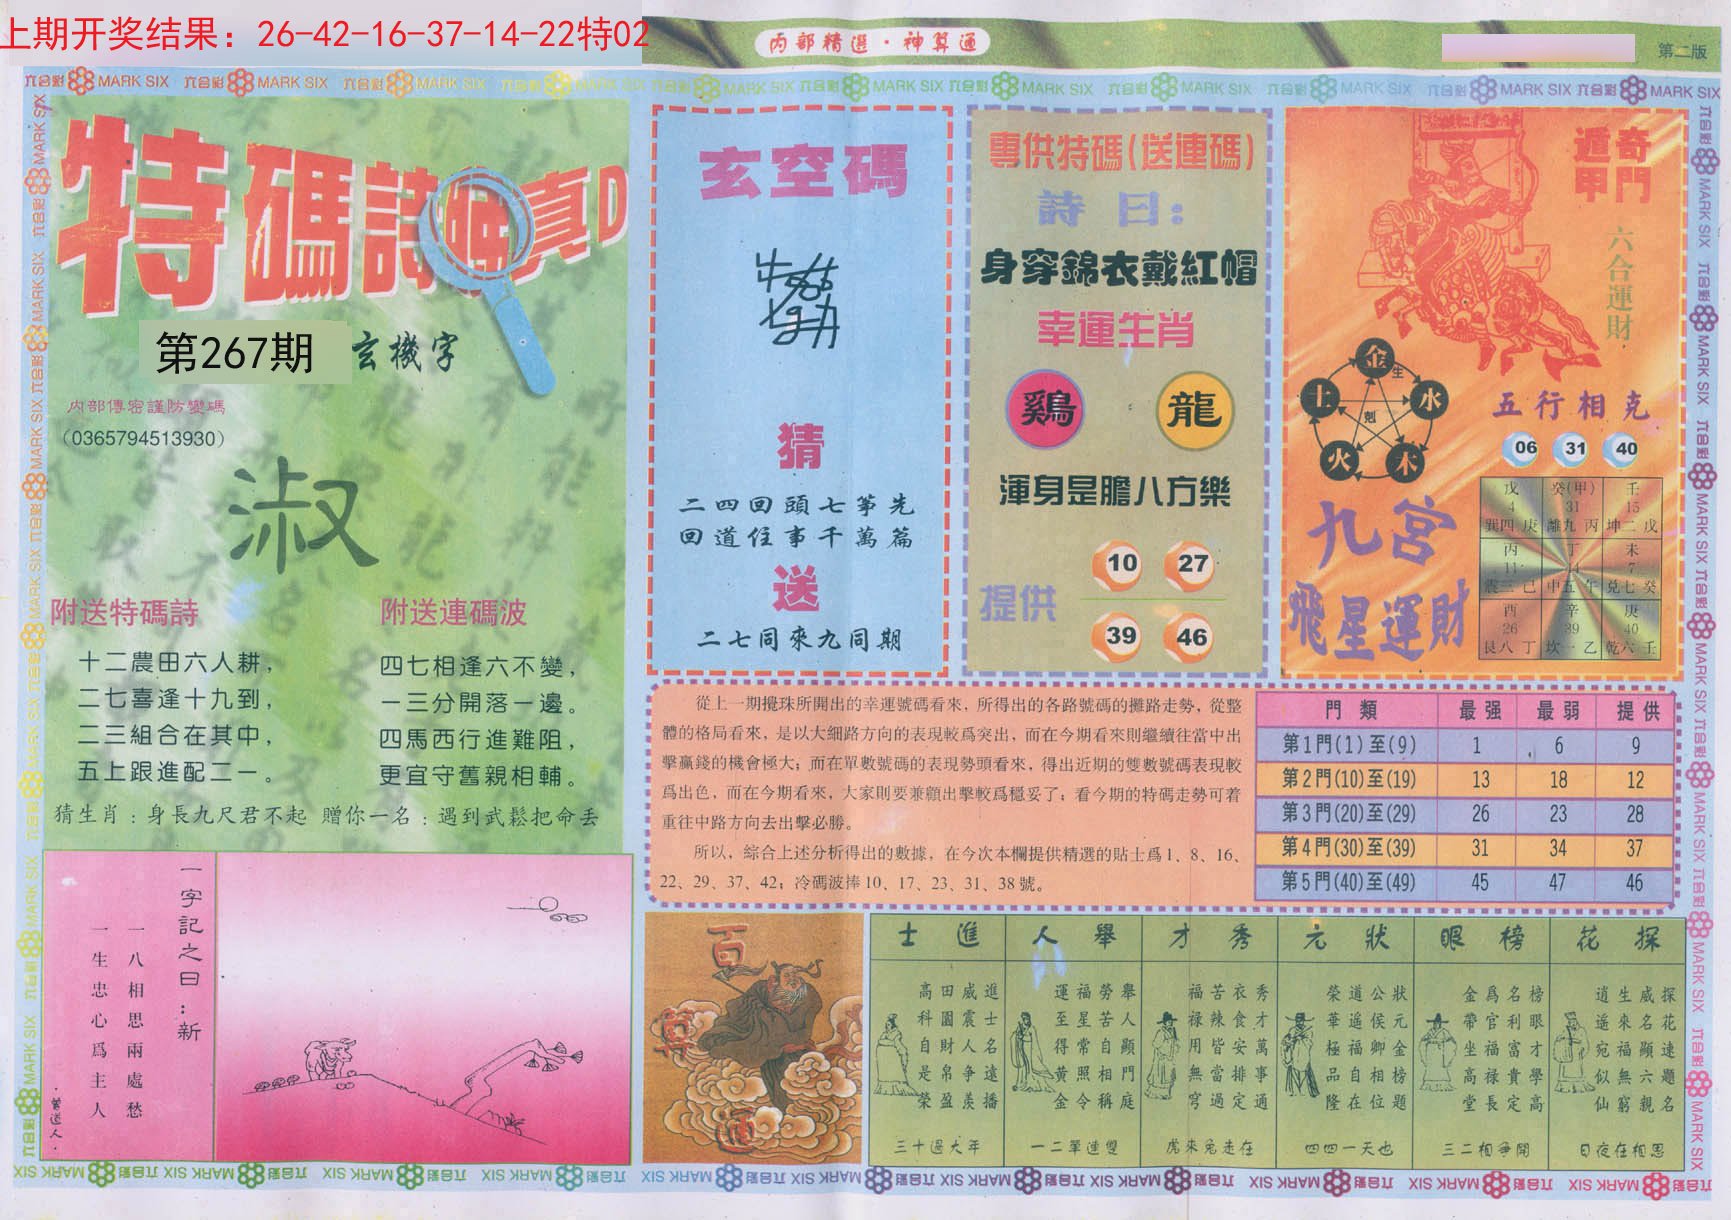 上期开奖结果：26-42-16-37-14-22特02
内部精選·神算通
第二版
六合彩 MARK SIX 六合彩 MARK SIX 六合彩 MARK SIX 六合彩 MARK SIX
特碼詩
真D
第267期
玄機字
内部傳密謹防變碼
（0365794513930）
淑
附送特碼詩
十二農田六人耕，
二七喜逢十九到，
二三組合在其中，
五上跟進配二一。
附送連碼波
四七相逢六不變，
一三分開落一邊。
四馬西行進難阻，
更宜守舊親相輔。
猜生肖：身長九尺君不起 贈你一名：遇到武鬆把命丢
一字記之曰：新
一八相思兩處愁
一生忠心爲主人
·曾道人·
玄空碼
猜
二四回頭七筝先
回道任事千萬篇
送
二七同來九同期
專供特碼(送連碼)
詩曰：
身穿錦衣戴紅帽
幸運生肖
鷄 龍
渾身是膽八方樂
提供
10 27
39 46
奇門
遁甲
六合運財
金
生
水
木
火
土
剋
五行相克
06 31 40
九宮
飛星運財
戊 癸(甲) 壬
4 31 15
巽四 庚 離九 丙 坤二 戊
丙 丁 未
11 14 7
震三 己 中五 午 兌七 癸
酉 辛 庚
26 39 40
艮八 丁 坎一 乙 乾六 壬
從上一期攪珠所開出的幸運號碼看來，所得出的各路號碼的攤路走勢，從整
體的格局看來，是以大細路方向的表現較爲突出，而在今期看來則繼續往當中出
擊贏錢的機會極大；而在單數號碼的表現勢頭看來，得出近期的雙數號碼表現較
爲出色，而在今期看來，大家則要兼顧出擊較爲穩妥了；看今期的特碼走勢可着
重往中路方向去出擊必勝。
所以，綜合上述分析得出的數據，在今次本欄提供精選的貼士爲1、8、16、
22、29、37、42；冷碼波捧10、17、23、31、38號。
門類 最强 最弱 提供
第1門(1)至(9) 1 6 9
第2門(10)至(19) 13 18 12
第3門(20)至(29) 26 23 28
第4門(30)至(39) 31 34 37
第5門(40)至(49) 45 47 46
百
運
進士
進士名遠播
威震人争羨
田園財帛盈
高科自是榮
三十過大年
舉人
舉人顯門庭
勞苦自相稱
福星常照令
運至得黄金
一二單進雙
秀才
秀才萬事通
衣食安排定
苦辣皆當過
福禄用無穹
虎來兔走在
狀元
狀元金榜題
公侯卿相位
道遙福自在
榮華極品隆
四四一天也
榜眼
榜眼才學高
名利富貴定
爲官福禄長
金帶坐高堂
三二相爭開
探花
探花速題名
威名顯六親
生來福無窮
逍遙宛似仙
日夜在相思